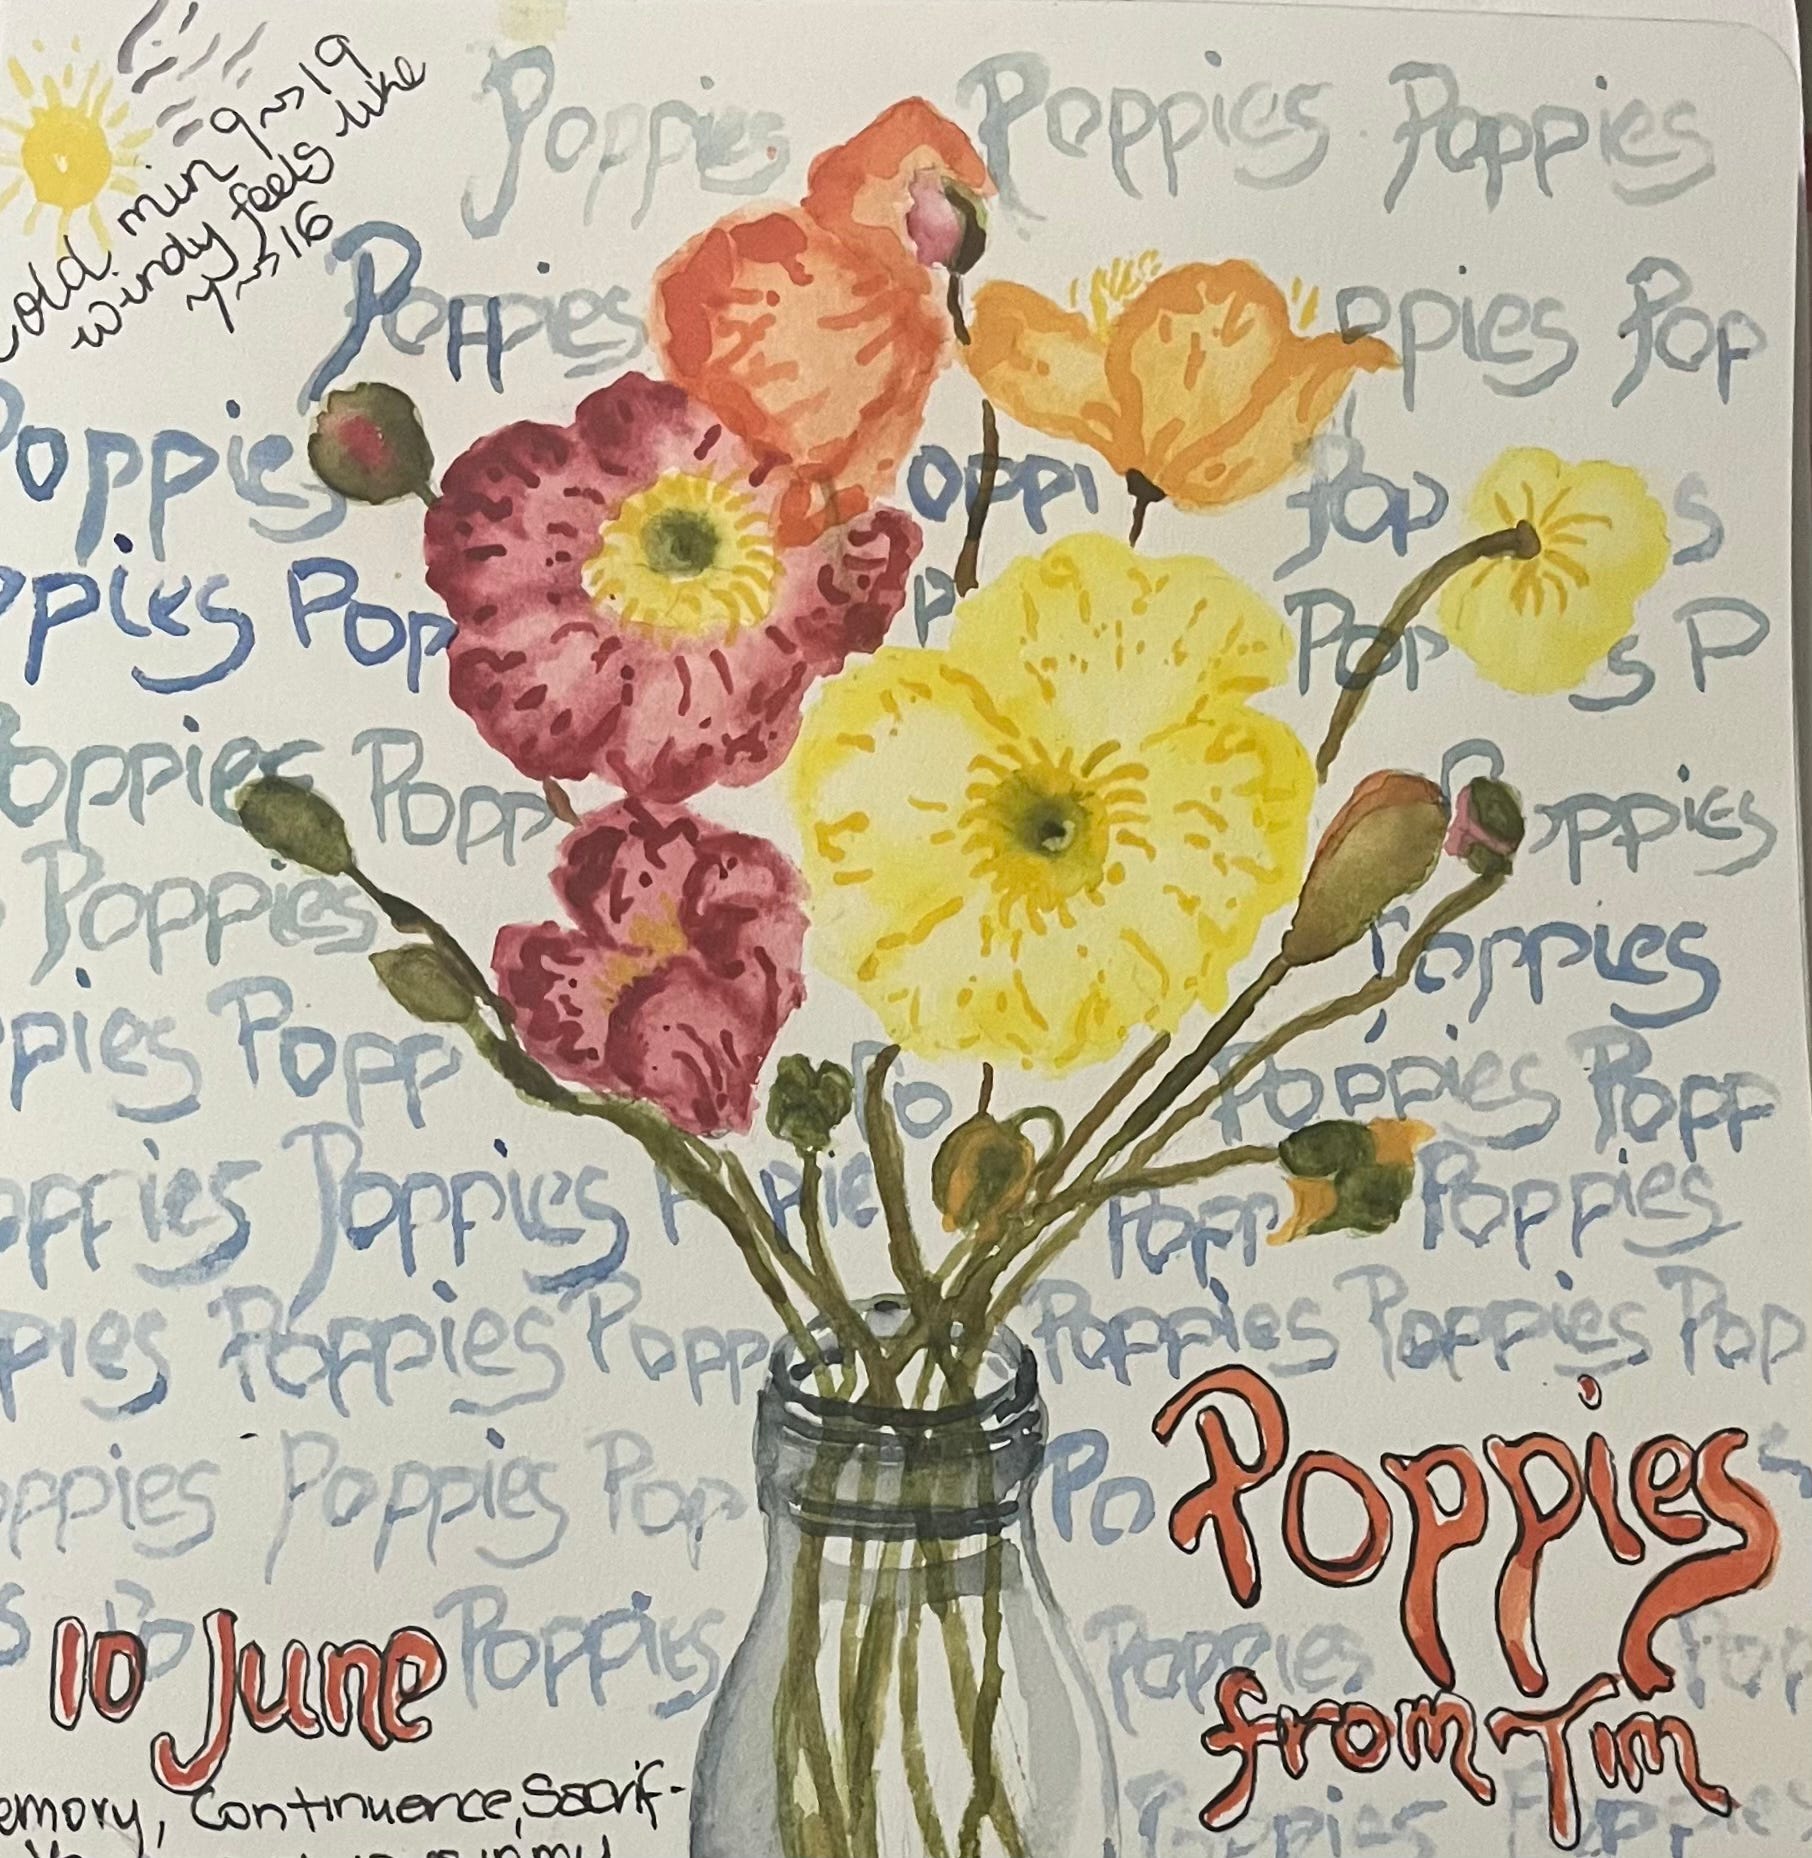 cold min 9~>19
windy feels like
7~>16
Poppies Poppies Poppies
Poppies ppies Pop
Poppies oppi Pop s
ppies Pop P Pop s P
oppies Popp oppies
Poppies oppies
ppies Popp Po Poppies Popp
oppies Poppies P pie Popp Poppies
pies Poppies Popp Poppies Poppies Pop
oppies Poppies Pop Po s
Poppies
s Po Poppies Poppies Pop
10 June
from Tim
emory, Continuence, Sacrif-
Poppies Popp
in my